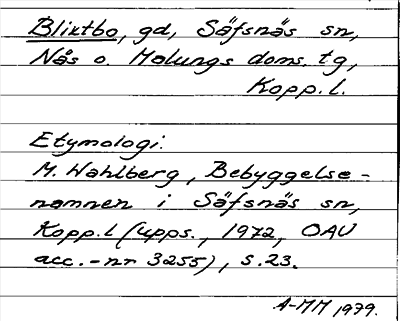 Bliktbo, gd, Säfsnäs sn,
Nås o. Malungs doms. tg,
Kopp. l.
Etymologi:
M. Wahlberg, Bebyggelse-
namnen i Säfsnäs sn,
Kopp. l (upps., 1972, OAU
acc.-nr 3255), s. 23.
A-MM 1979.